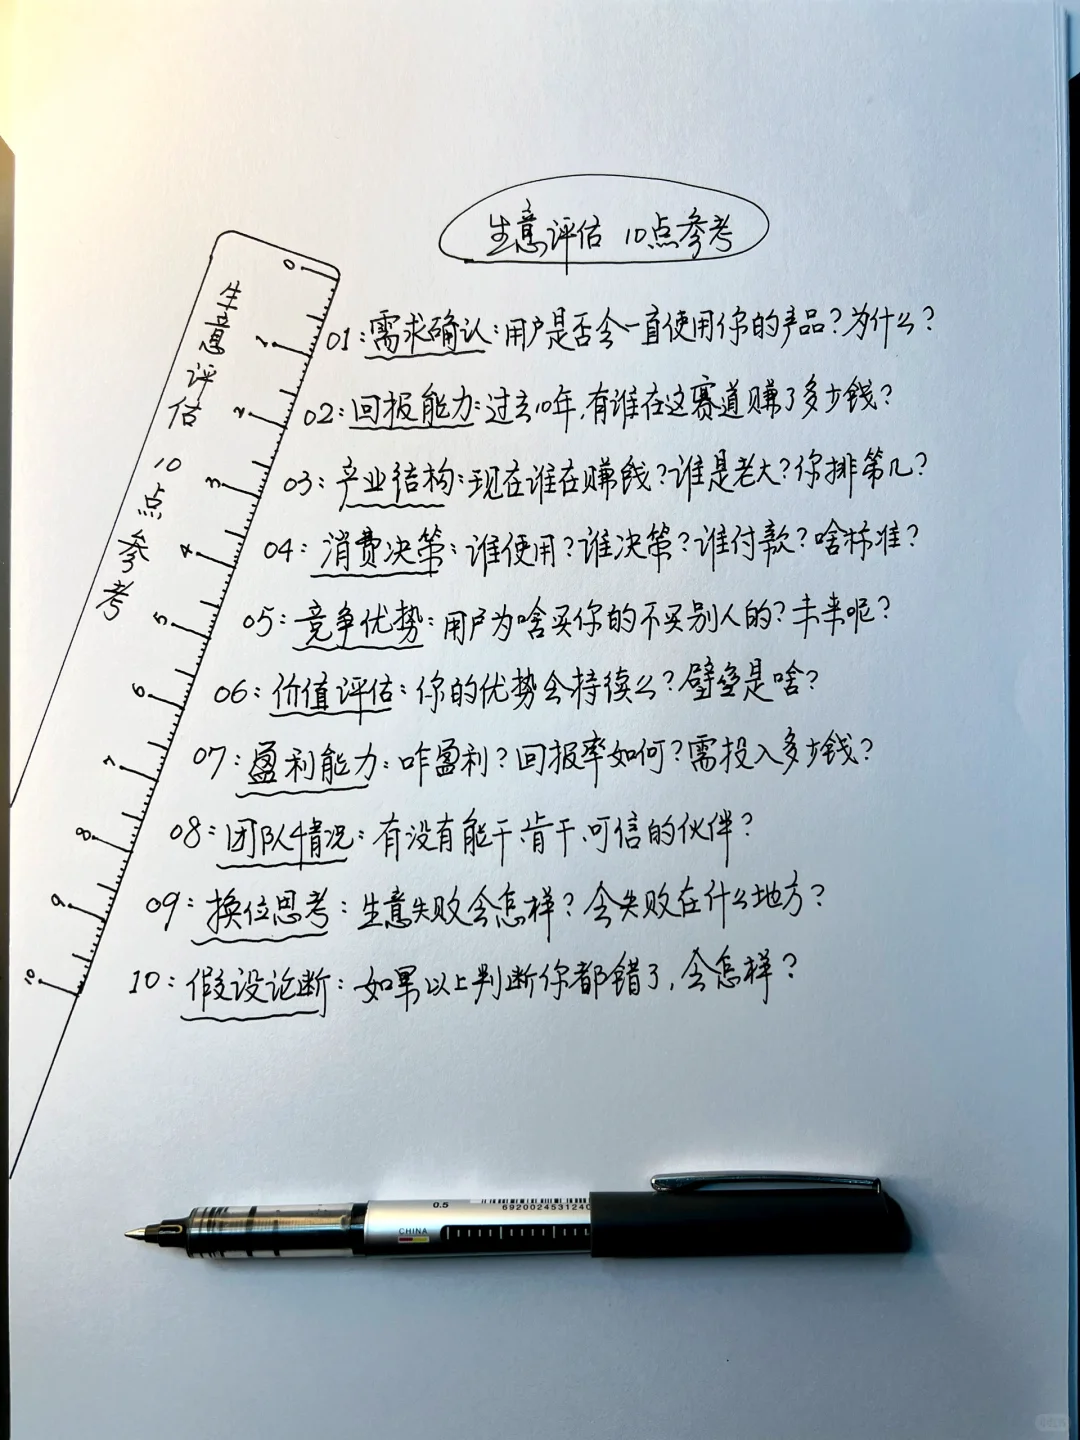 生意评估 10点参考
0
1
2
3
4
5
6
7
8
9
10
生意评估 10点参考
01：需求确认：用户是否会一直使用你的产品？为什么？
02：回报能力：过去10年，有谁在这赛道赚了多少钱？
03：产业结构：现在谁在赚钱？谁是老大？你排第几？
04：消费决策：谁使用？谁决策？谁付款？啥标准？
05：竞争优势：用户为啥买你的不买别人的？未来呢？
06：价值评估：你的优势会持续么？壁垒是啥？
07：盈利能力：咋盈利？回报率如何？需投入多少钱？
08：团队情况：有没有能干、肯干、可信的伙伴？
09：换位思考：生意失败会怎样？会失败在什么地方？
10：假设论断：如果以上判断你都错了，会怎样？
0.5
6920024531240
CHINA